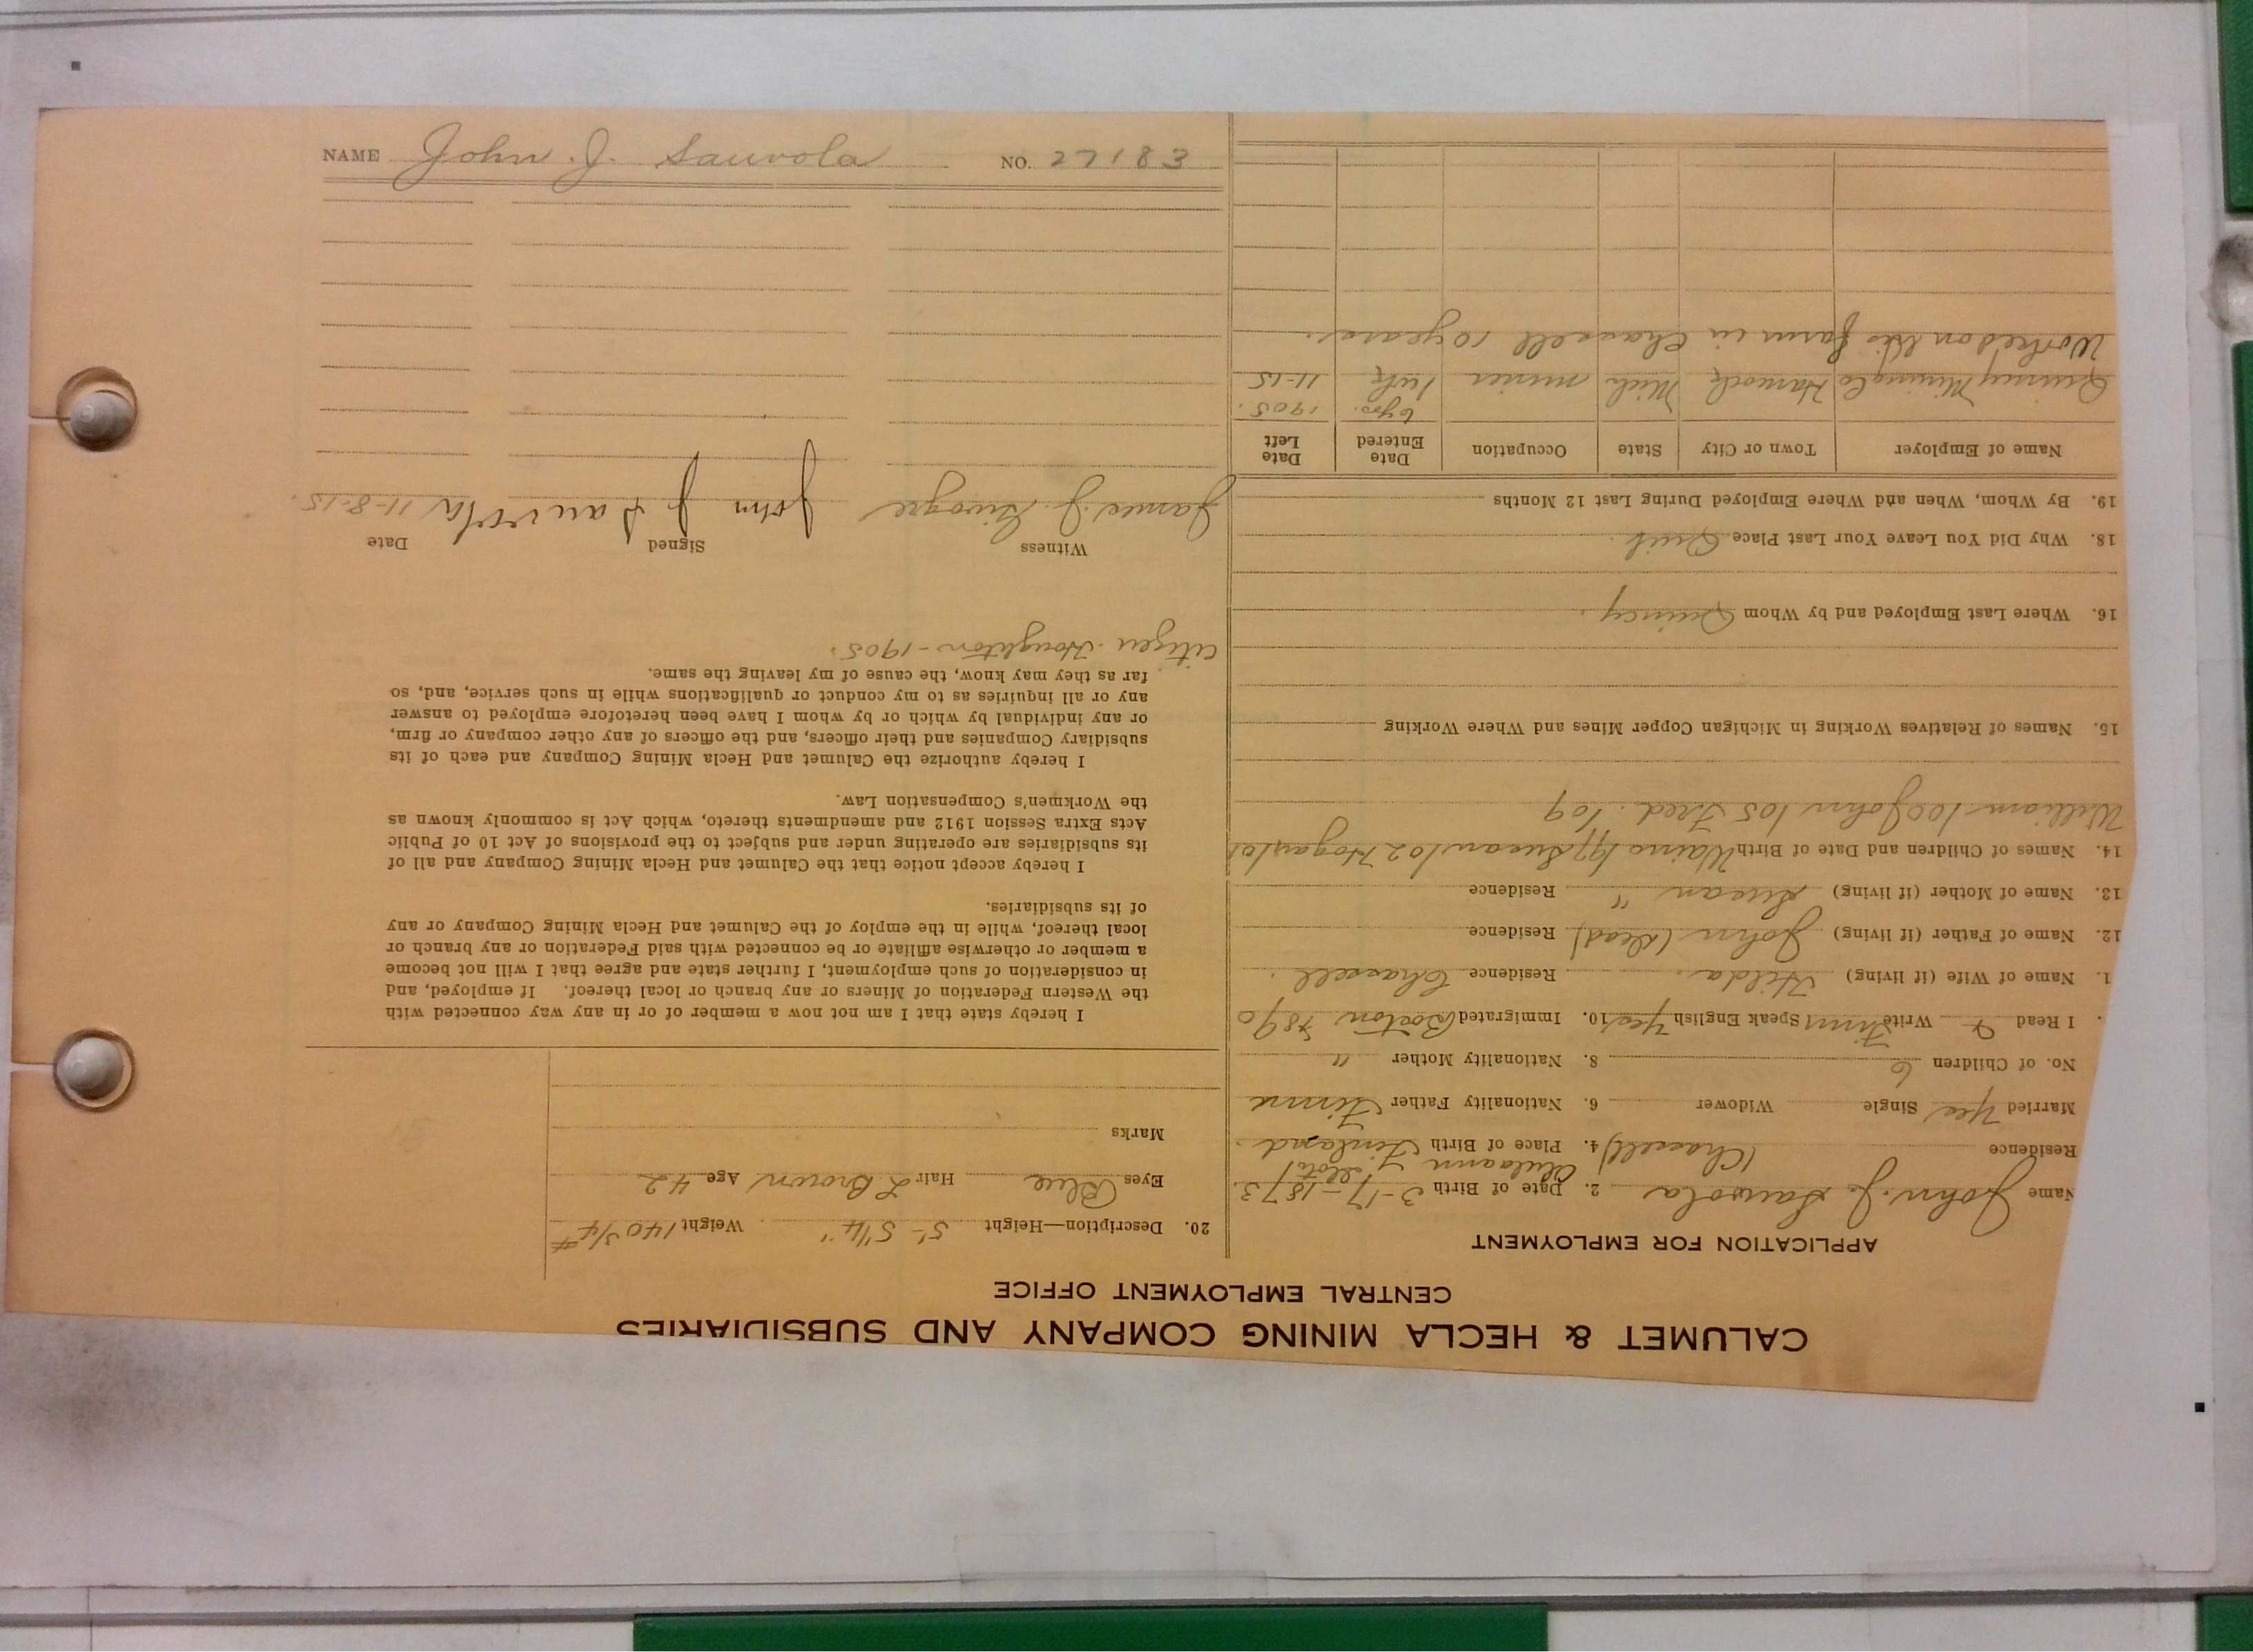 CALUMET & HECLA MINING COMPANY AND SUBSIDIARIES
CENTRAL EMPLOYMENT OFFICE
APPLICATION FOR EMPLOYMENT
Name John J. Sauvola 2. Date of Birth 3-17-1873.
Residence (Chassell) 4. Place of Birth Finland.
Married Yes Single Widower 6. Nationality Father Finn
No. of Children 6 8. Nationality Mother "
. I Read Write Finn Speak English Yes 10. Immigrated Boston 1890
1. Name of Wife (if living) Hilda. Residence Chassell.
12. Name of Father (if living) John (dead) Residence
13. Name of Mother (if living) Susan " Residence
14. Names of Children and Date of Birth Waino 197 Susan 102 101
William 100 John 105 Fred. 109
15. Names of Relatives Working in Michigan Copper Mines and Where Working
16. Where Last Employed and by Whom Quincy.
18. Why Did You Leave Your Last Place Quit.
19. By Whom, When and Where Employed During Last 12 Months
Name of Employer Town or City State Occupation Date Entered Date Left
6 yrs. 1905.
Quincy Mining Co Hancock Mich miner 1 wk 11-15
Worked on his farm in Chassell 10 years.
20. Description—Height 5'- 5 1/4" Weight 140 3/4 #
Eyes Blue Hair L. Brown Age 42
Marks
I hereby state that I am not now a member of or in any way connected with
the Western Federation of Miners or any branch or local thereof. If employed, and
in consideration of such employment, I further state and agree that I will not become
a member or otherwise affiliate or be connected with said Federation or any branch or
local thereof, while in the employ of the Calumet and Hecla Mining Company or any
of its subsidiaries.
I hereby accept notice that the Calumet and Hecla Mining Company and all of
its subsidiaries are operating under and subject to the provisions of Act 10 of Public
Acts Extra Session 1912 and amendments thereto, which Act is commonly known as
the Workmen's Compensation Law.
I hereby authorize the Calumet and Hecla Mining Company and each of its
subsidiary Companies and their officers, and the officers of any other company or firm,
or any individual by which or by whom I have been heretofore employed to answer
any or all inquiries as to my conduct or qualifications while in such service, and, so
far as they may know, the cause of my leaving the same.
Citizen Houghton - 1905.
Witness Signed Date
James J. John J Sauvola 11-8-15.
NAME John J. Sauvola NO. 27183